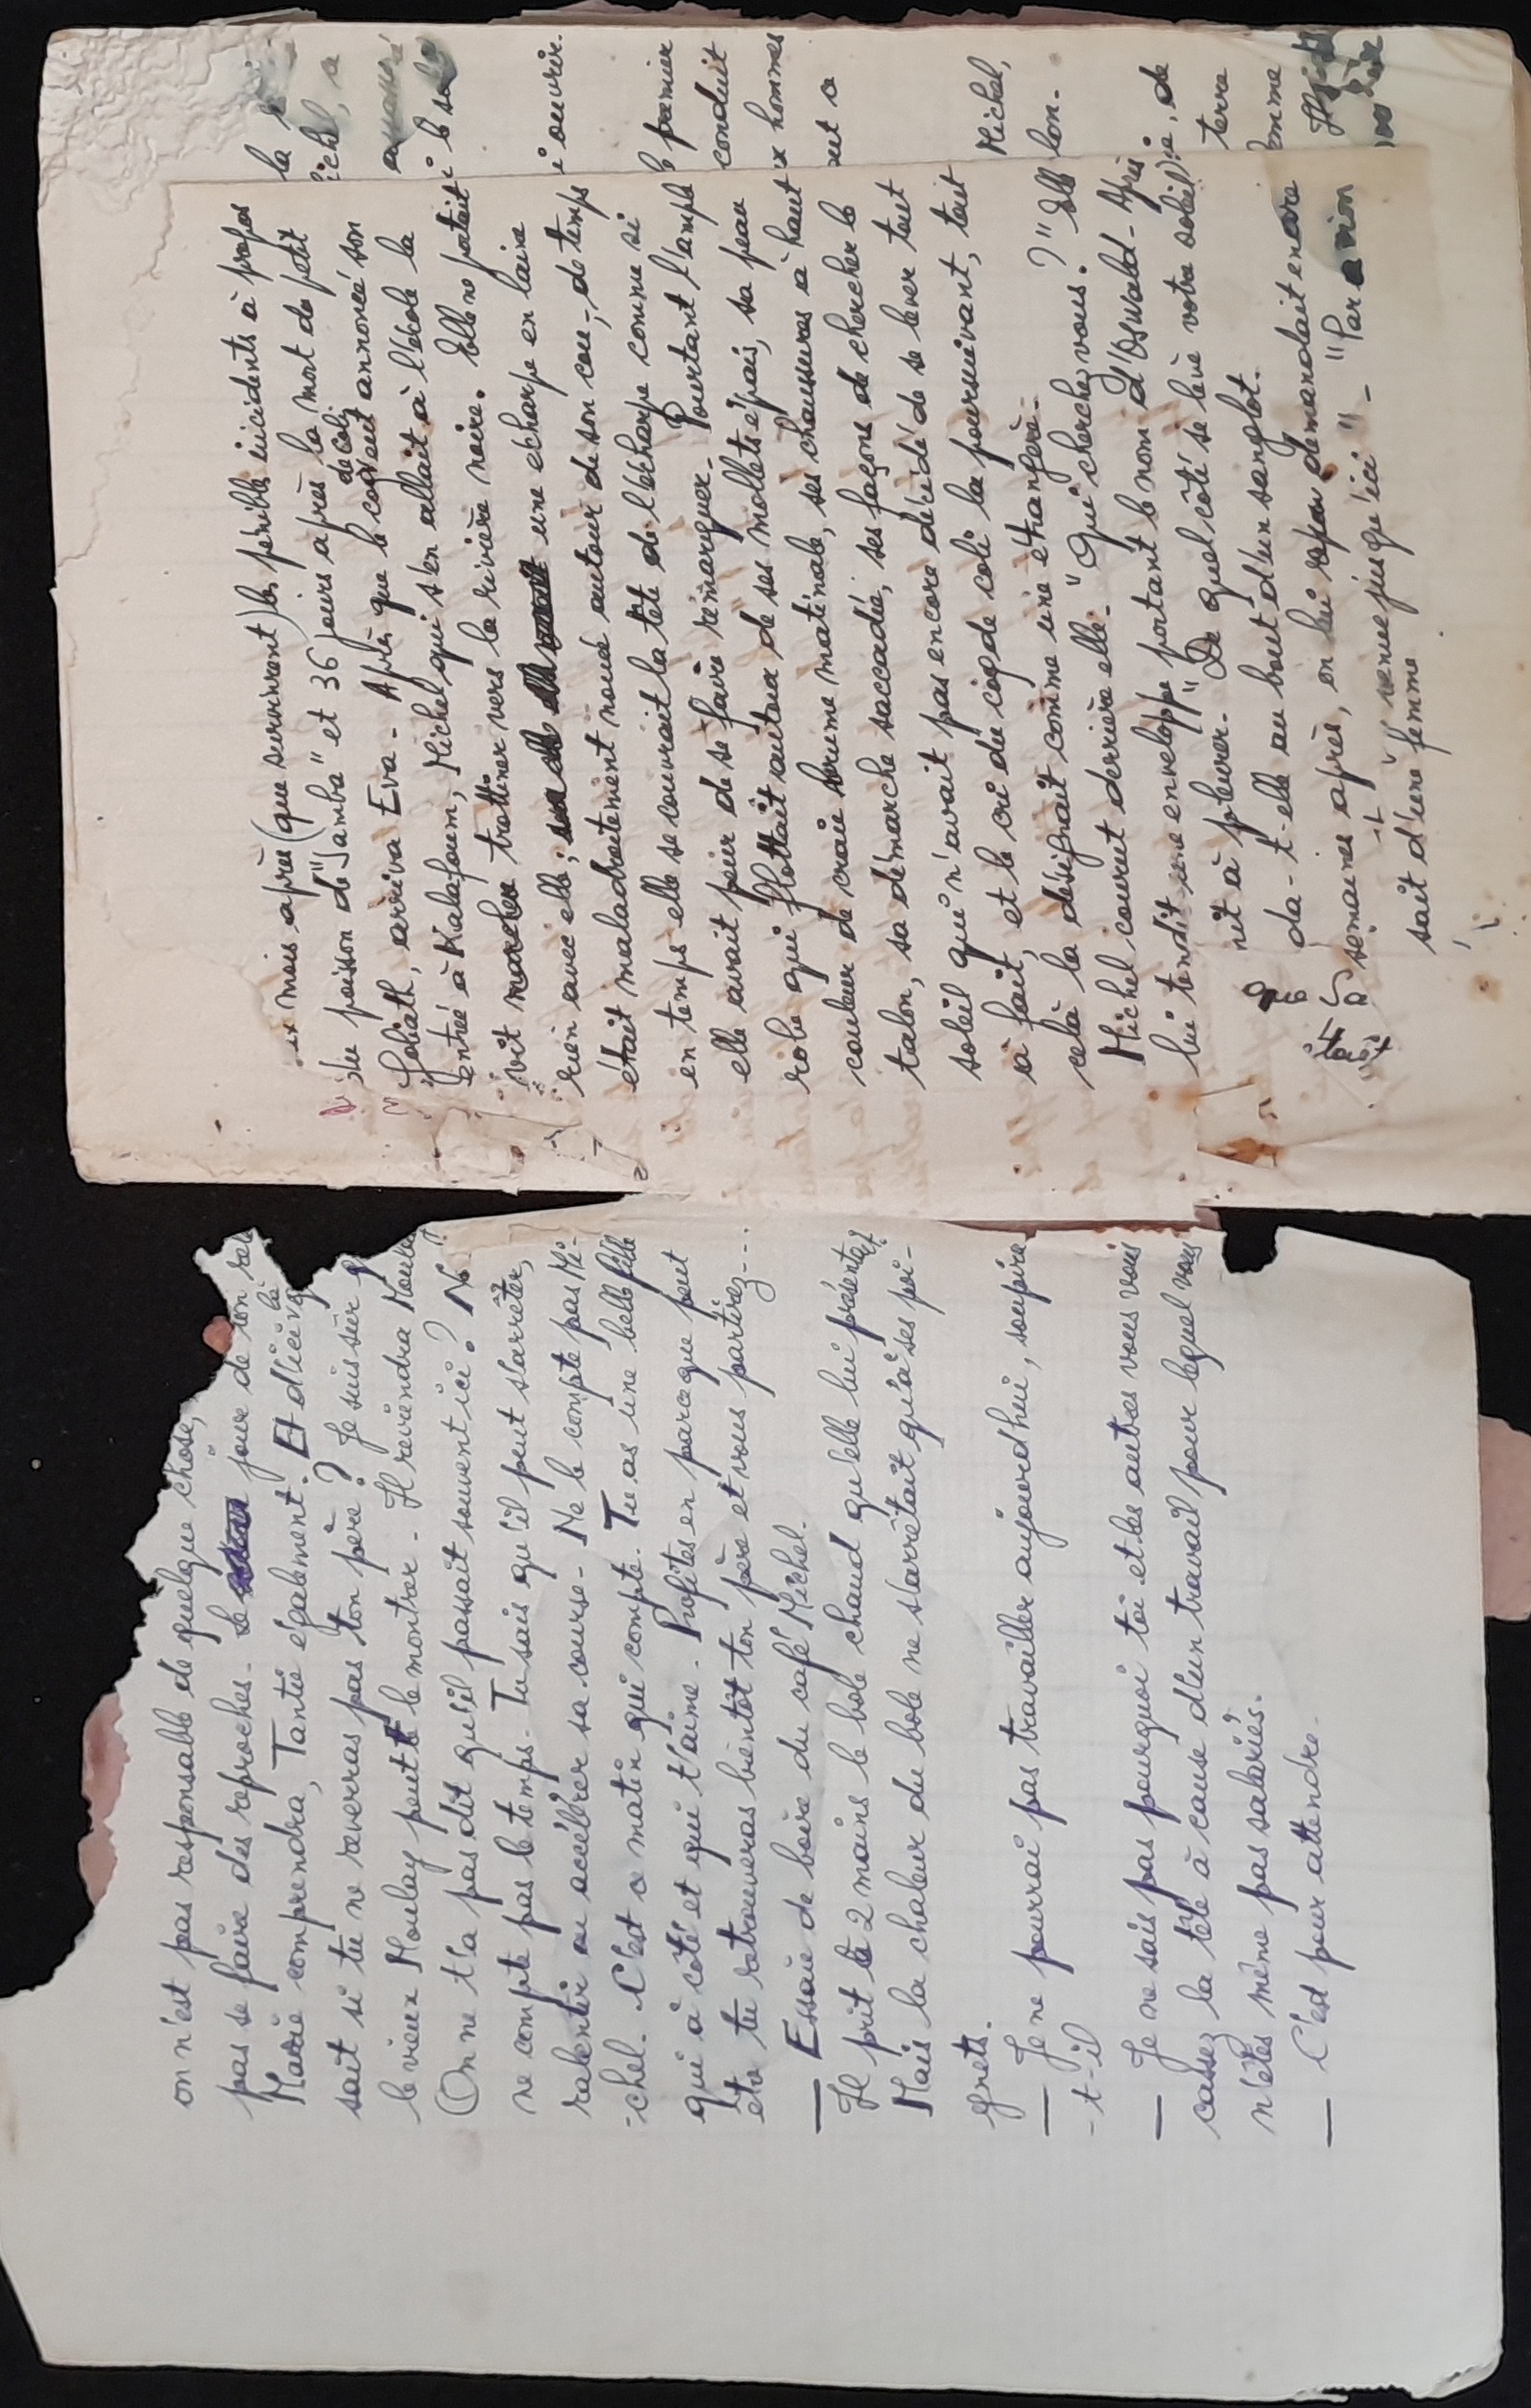 on n'est pas responsable de quelque chose,
pas se faire des reproches. Le jour de son
Marie comprendra, Tantie également. Et dieu
sait si tu ne reverras pas ton père ? Je suis sûr q
le vieux Moulay peut te le montrer. Il reviendra Moulay
On ne t'a pas dit qu'il passait souvent ici ? Ne
ne compte pas le temps. Tu sais qu'il peut s'arrêter,
ralentir ou accélérer sa course. Ne le compte pas Mi-
-chel. C'est ce matin qui compte. Tu as une belle fille
qui à côté et qui t'aime. Profites en parceque peut
etre tu retrouveras bientôt ton père et vous partirez...
— Essaie de boire du café Michel.
Il prit le 2 mains le bole chaud qu'elle lui présentait.
Mais la chaleur du bole ne s'arrêtait qu'à ses poi-
gnets.
— Je ne pourrai pas travailler aujourd'hui, soupira
-t-il
— Je ne sais pas pourquoi toi et les autres vous vous
cassez la tête à cause d'un travail pour lequel vous
n'êtes même pas salariés.
— C'est pour attendre.
mois après (que survinrent) les pénibles incidents à propos
du poisson de "Jamba" et 36 jours après la mort de petit
de coli
Goliath, arriva Eva. Après que le coq eut annoncé son
entrée à Kalafoum, Michel qui s'en allait à l'école la
vit marcher trottiner vers la rivière noire. Elle ne portait
rien avec elle ; une écharpe en laine
était maladroitement noué autour de son cou ; de temps
en temps elle se couvrait la tête de l'écharpe comme si
elle avait peur de se faire remarquer. Pourtant l'ample
robe qui flottait autour de ses mollets épais, sa peau
couleur de craie brume matinale, ses chaussures à haut
talon, sa démarche saccadée, ses façons de chercher le
soleil qui n'avait pas encore décidé de se lever tout
à fait, et le cri du coq de coli la poursuivant, tout
cela la désignait comme une étrangère.
Michel courut derrière elle. "Qui cherchez vous ?" Elle
lui tendit une enveloppe portant le nom d'Oswald. Après
nit à pleurer. "De quel côté se lève votre soleil
da-t-elle au bout d'un sanglot.
semaines après, en lui demandait encore
venue jusqu'ici" - "Par avion
sait d'une femme
la
a
le
ouvrir.
le premier
conduit
hommes
Michel,
lon.
de
terre